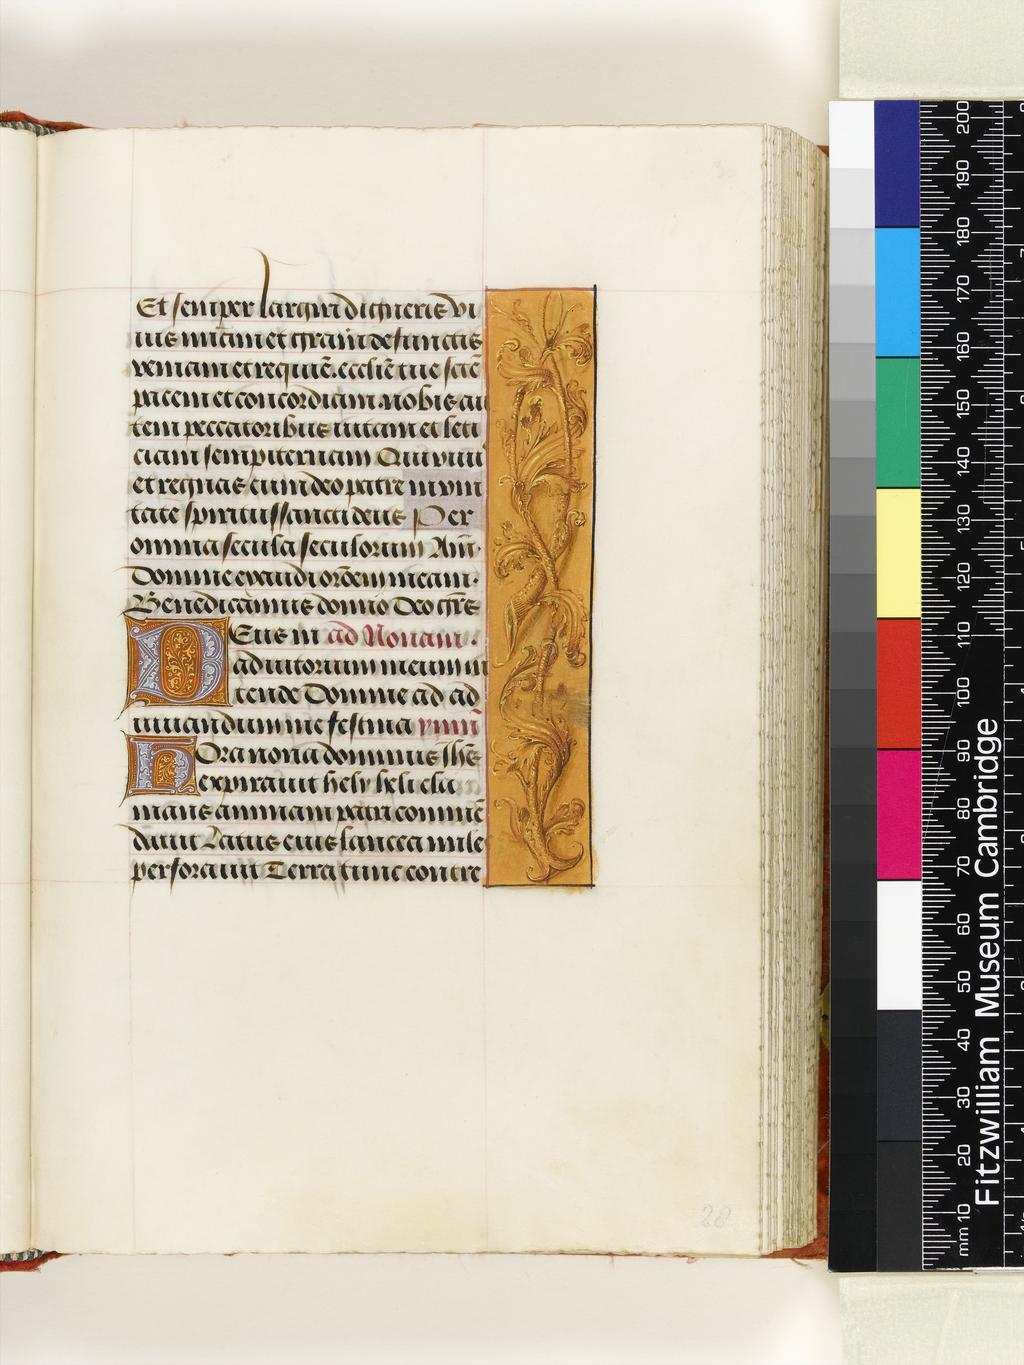 Et semper largiri digneris vi
uis mi̅am et gra̅m defunctis
veniam et requie̅. ecclie̅ tue sc̅te
pacem et concordiam nobis au
tem peccatoribus vitam et leti
ciam sempiternam Qui viuis
et regnas cum deo patre in vni
tate spiritussancti deus Per
omnia secula seculorum Am̅.
Domine exaudi or̅oem meam.
Benedicamus domino Deo gr̅s
Deus in ad Nonam.
adiutorium meum in
tende Domine ad ad
iuuandum me festina ymn̅
Hora nona dominus Ihe̅s
expirauit hely hely cla
mans animam patri comme̅
dauit Latus eius lancea mile
perforauit Terra tunc contre
30
28
Fitzwilliam Museum Cambridge
mm 10 20 30 40 50 60 70 80 90 100 110 120 130 140 150 160 170 180 190 200